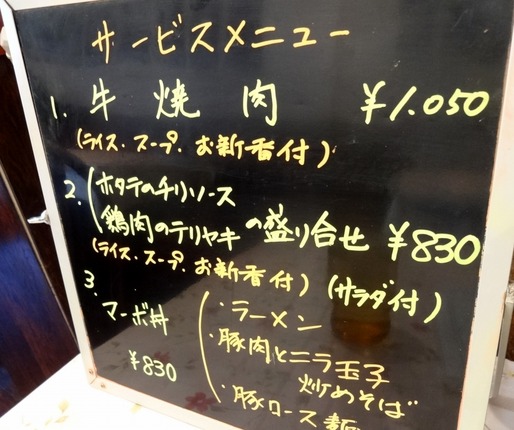 サービスメニュー
1. 牛焼肉 ¥1.050
(ライス、スープ、お新香付)
2. ホタテのチリソース
鶏肉のテリヤキ の盛り合せ ¥830
(ライス、スープ、お新香付) (サラダ付)
3. マーボ丼
¥830
・ラーメン
・豚肉とニラ玉子
炒めそば
・豚ロース